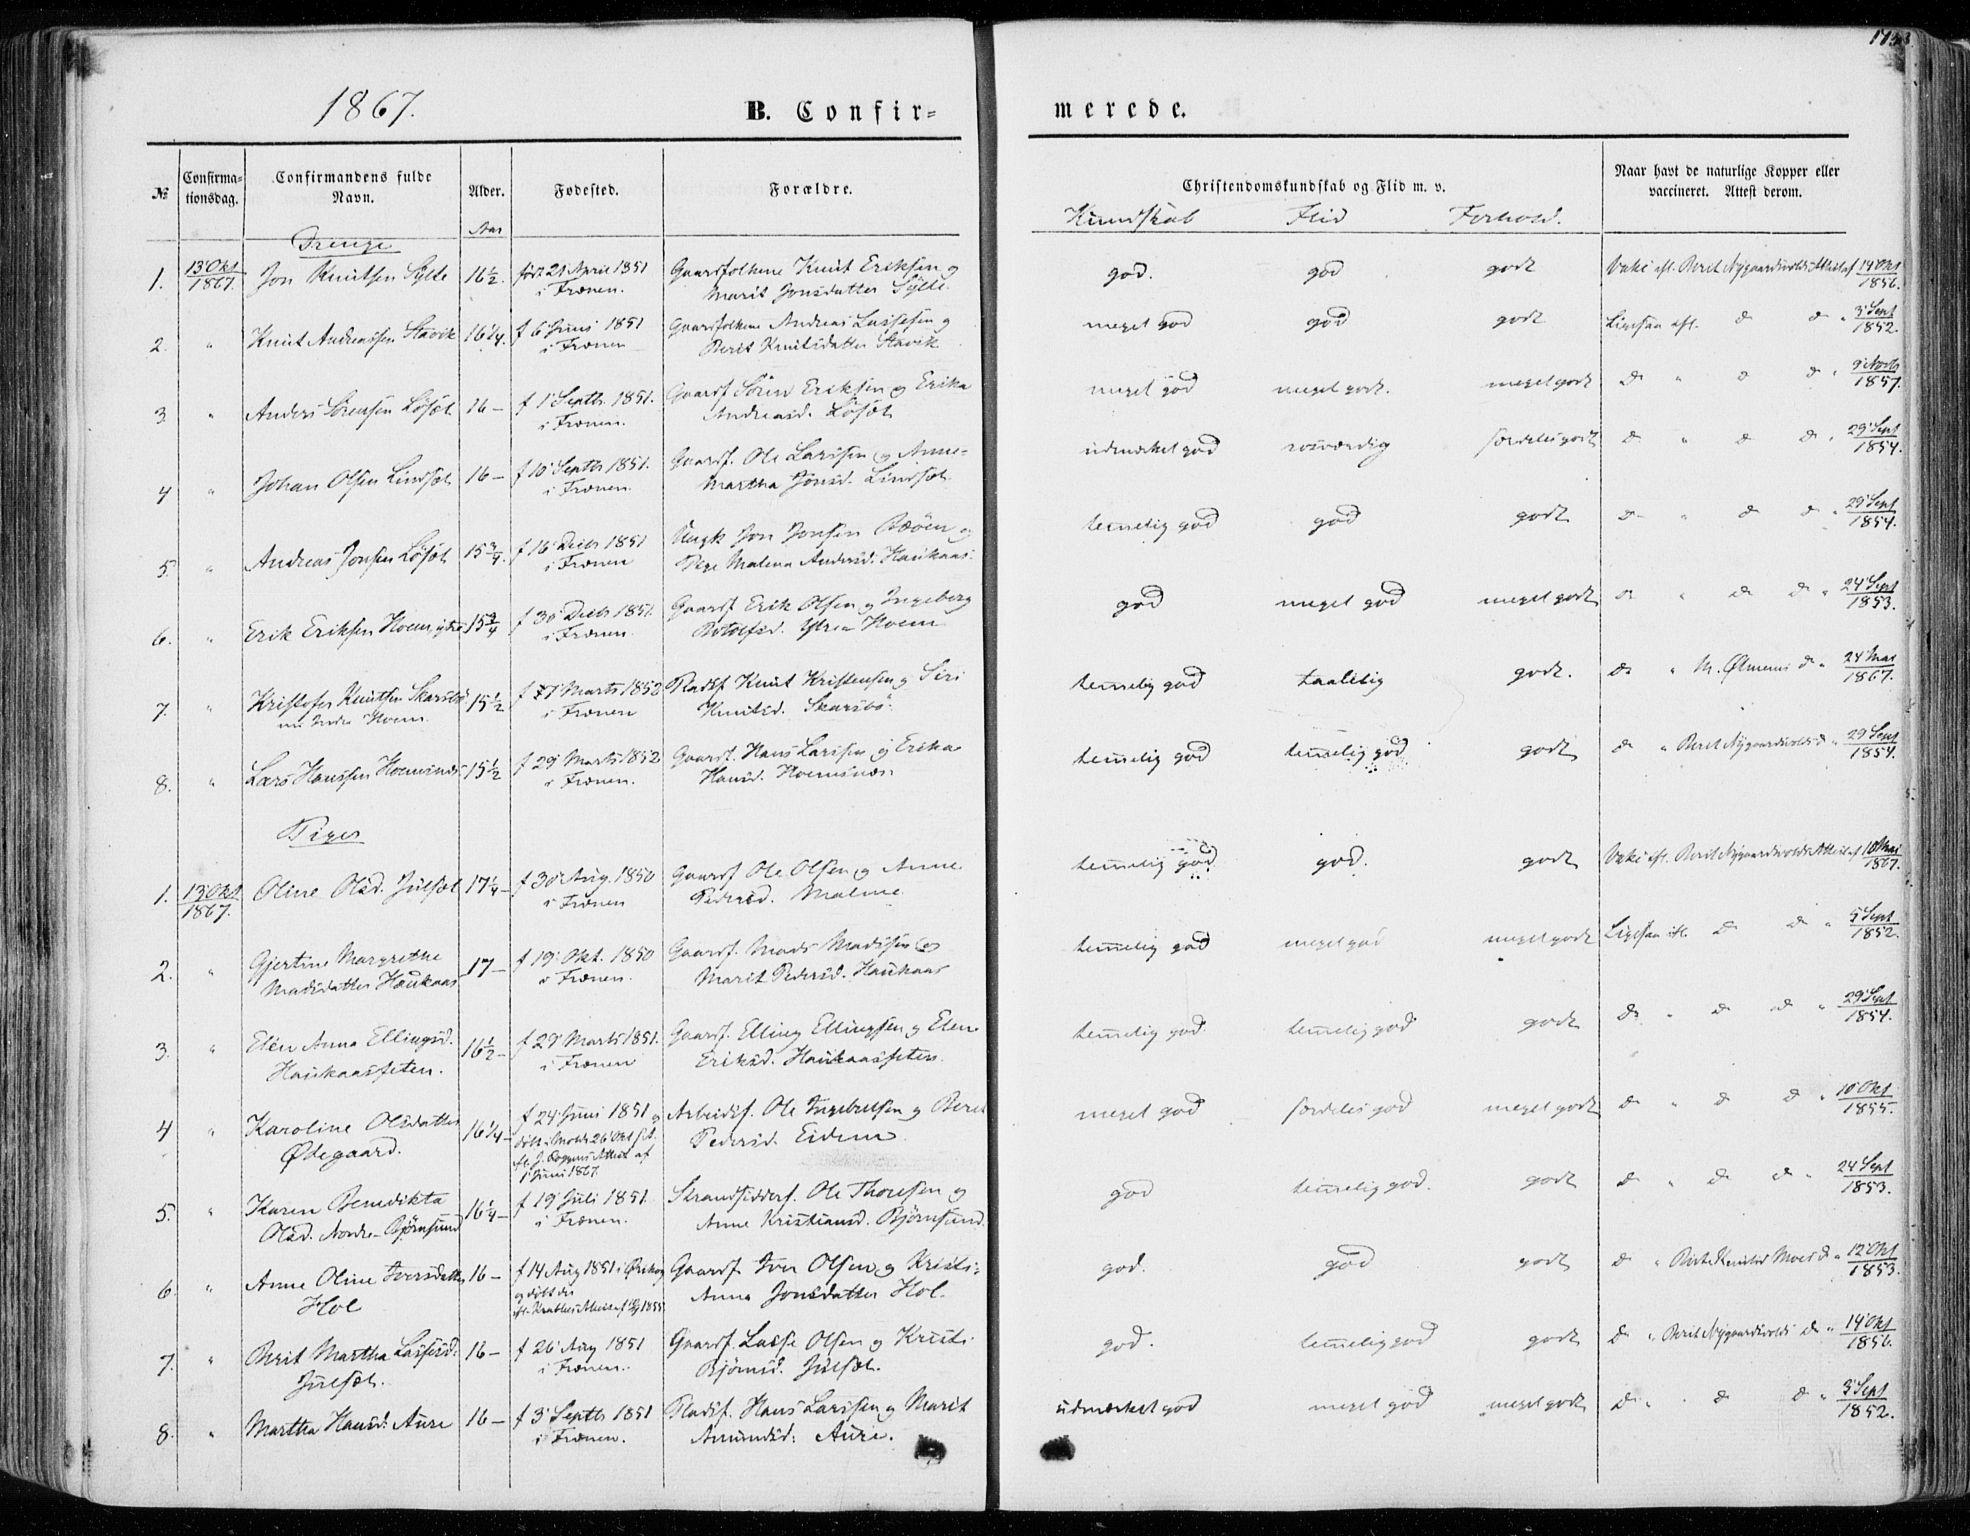 1753
1867.
B. Confir=
merede.
№
Confirma=
tionsdag.
Confirmandens fulde
Navn.
Alder.
Fødested.
Forældre.
Christendomskundskab og Flid m. v.
Naar havt de naturlige Kopper eller
vaccineret. Attest derom.
Aar
Kundskab Flid Forhold.
Drenge
1. 13 Okt 1867. Jon Knutsen Sylte 16½. født 21 April 1851 Gaardfolkene Knut Eriksen og god. god godt Vaks. eft. Berit Nygaardsvolds Attest af 14 Okt 1856.
i Frænen. Marit Jonsdatter Sylte.
2. " Knut Andreassen Stavik 16¼. f 6 Juni 1851 Gaardfolkene Andreas Lassesen og meget god god godt Ligesaa eft. do do " 3 Sept 1852.
i Frænen Berit Knutsdatter Stavik
3. " Anders Sørensen Løset 16 — f 1 Septbr 1851. Gaardf. Sören Eriksen og Erika meget god meget godt. meget godt do " do do " 9 Novb 1857.
i Frænen. Andreasd. Løset
4 " Johan Olsen Lindset 16 — f 10 Septbr 1851. Gaardf. Ole Larssen og Anne= udmærket god rosværdig særdeles godt do " do do " 29 Sept 1854.
i Frænen. Martha Jonsd. Lindset
5. " Andreas Jonsen Løset 15¾. f 16 Decbr 1851 Ungk Jon Jonsen Bøen og temmelig god god godt do " do do " 29 Sept 1854.
i Frænen Pige Malena Andersd. Haukaas.
6. " Erik Eriksen Hoem, ytre 15¾ f 30 Decbr 1851. Gaardf Erik Olsen og Ingeborg god meget god meget godt do " do do " 24 Sept 1853.
i Frænen. Botolfsd. Ytre Hoem
7. " Kristofer Knutsen Skarsbø 15½ f 7 Marts 1852 Pladsf Knut Kristensen og Siri temmelig god taalelig godt. do " M. Ølmems do " 24 Mai 1867.
nu Indre Hoem. i Frænen Knutsd. Skarsbø.
8. " Lars Hanssen Hoemsnæs 15½ f 29 Marts 1852 Gaardf. Hans Larssen og Erika temmelig god temmelig god godt do " Berit Nygaardsvolds do " 29 Sept 1854.
i Frænen. Hansd. Hoemsnæs
Piger
1. 13 Okt 1867. Oline Olsd. Julset 17¼ — f 30 Aug. 1850 Gaardf Ole Olsen og Anne temmelig god. god. godt Vaks. eft. Berit Nygaardsvolds Attest af 10 Mai 1867.
i Frænen Pedersd. Malme
2. " Gjertine Margrethe 17 — f 19. Okt. 1850 Gaardf. Mads Madssen og temmelig god meget god meget godt Ligesaa eft. do do " 5 Sept 1852.
Madsdatter Haukaas i Frænen. Marit Pedersd. Haukaas
3. " Elen Anna Ellingsd. 16½ — f 29 Marts 1851. Gaardf. Elling Ellingsen og Elen temmelig god temmelig god godt do " do do " 29 Sept 1854.
Haukaassæten. i Frænen Eriksd. Haukaassæten.
4 " Karoline Olsdatter 16¼ — f 24 Juni 1851 og Arbeidsf. Ole Ingebretsen og Berit meget god særdeles god meget godt do " do do " 10 Okt 1855.
Ødegaard. døbt i Molde 26 Okt s. A. Pedersd. Eidem.
eft. J. Coppens Attest af
1 Juni 1867.
5. " Karen Benedikta 16¼ — f 19 Juli 1851. Strandsidderf. Ole Thoresen og god temmelig god. godt do " do do " 24 Sept 1853.
Olsd. Nordre-Bjørnsund i Frænen. Anne Kristiansd. Bjørnsund.
6. " Anne Oline Iversdatter 16 — f 14 Aug 1851 i Ørskog Gaardf. Iver Olsen og Kristi= god. god godt do " Berte Knutsd. Moes do " 12 Okt 1853.
Hol og døbt der Anna Jonsdatter Hol.
7. " Berit Martha Lassesd. 16 — f 26 Aug 1851 Gaardf. Lasse Olsen og Kristi god. temmelig god godt do " Berit Nygaardsvolds do " 14 Okt 1856.
Julset. i Frænen. Bjørnsd. Julset.
8. " Martha Hansd. Aure 16 — f 3 Septbr 1851 Pladsf. Hans Larssen og Marit udmærket god meget god meget godt do " do do " 3 Sept 1852.
i Frænen. Amundsd. Aure.